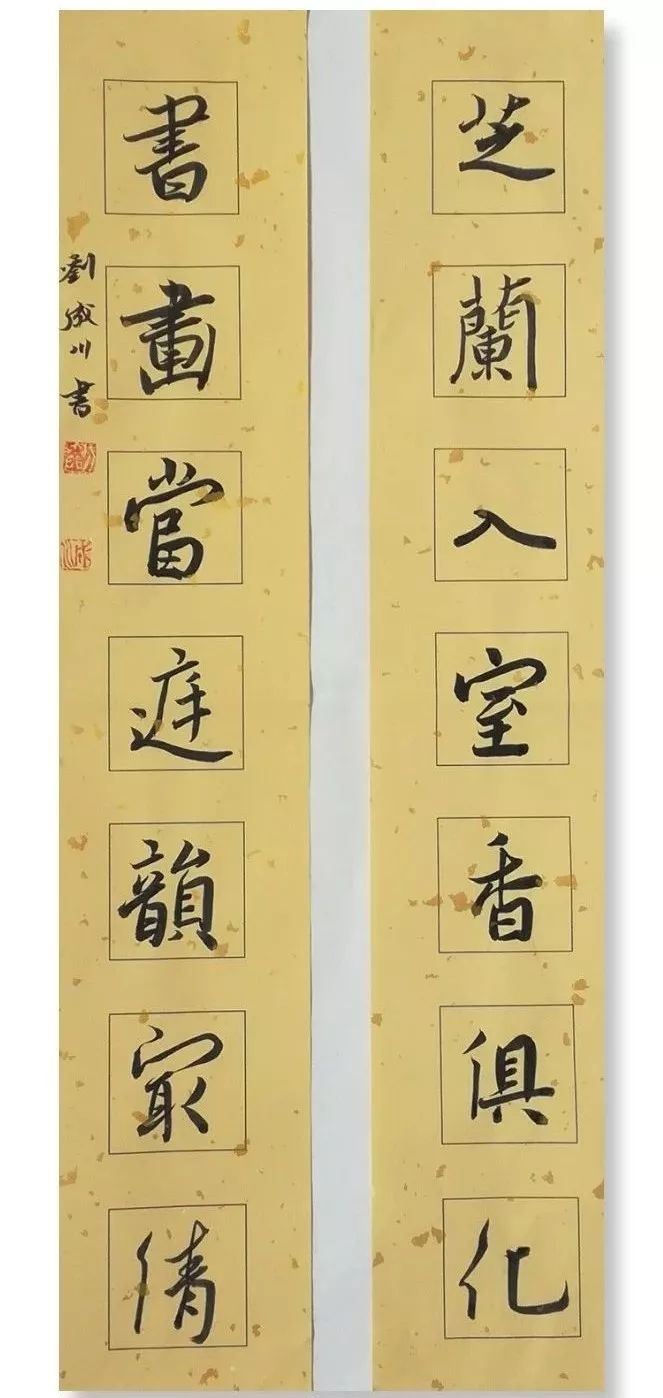 芝蘭入室香俱化
書畫當庭韻最清
劉成川書